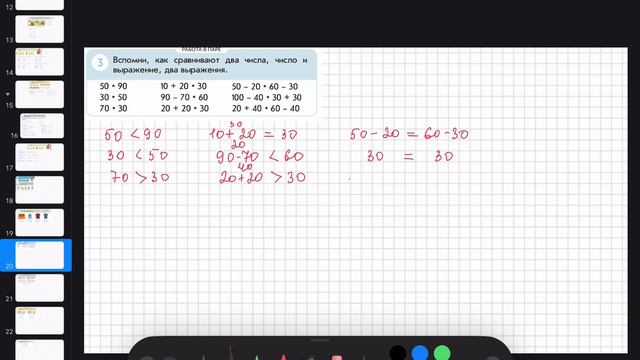 12
13
14
15
16
17
18
19
20
21
22
РАБОТА В ПАРЕ
3 Вспомни, как сравнивают два числа, число и
выражение, два выражения.
50 • 90 10 + 20 • 30 50 – 20 • 60 – 30
30 • 50 90 – 70 • 60 100 – 40 • 30 + 30
70 • 30 20 + 20 • 30 20 + 40 • 60 – 40
30
50 < 90 10+20 = 30 50-20 = 60-30
20
30 < 50 90-70 < 60 30 = 30
40
70 > 30 20+20 > 30